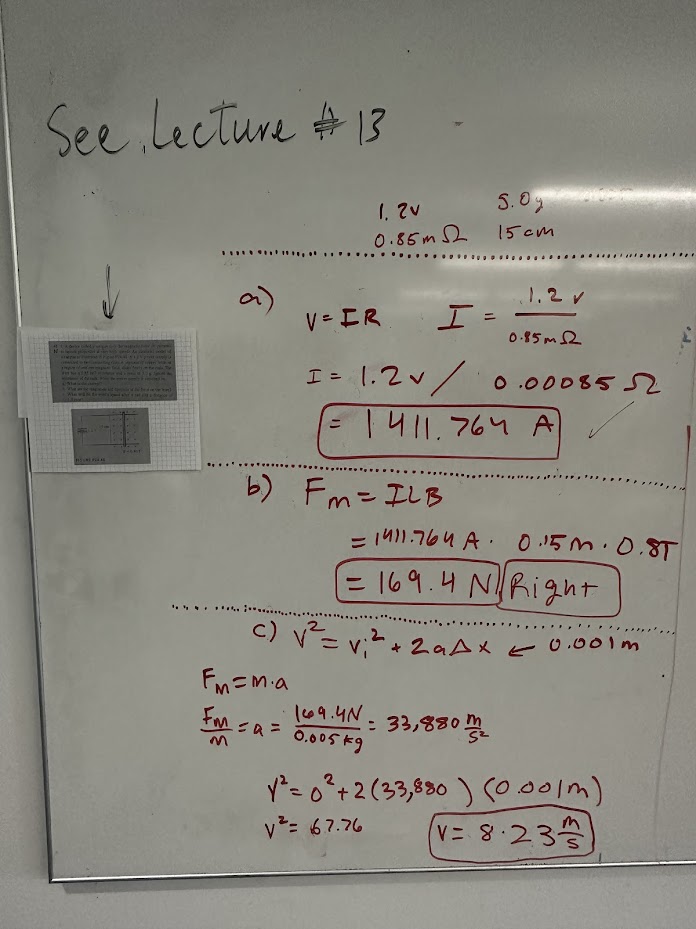 See Lecture #13
1.2v 5.0g
0.85mΩ 15cm
a) V=IR I = 1.2v / 0.85mΩ
I = 1.2v / 0.00085Ω
= 1411.764 A
b) Fm = ILB
= 1411.764A · 0.15m · 0.8T
= 169.4 N Right
c) v² = vi² + 2aΔx ← 0.001m
Fm = m·a
Fm/m = a = 169.4N/0.005kg = 33,880 m/s²
v² = 0² + 2(33,880) (0.001m)
v² = 67.76 v = 8.23 m/s